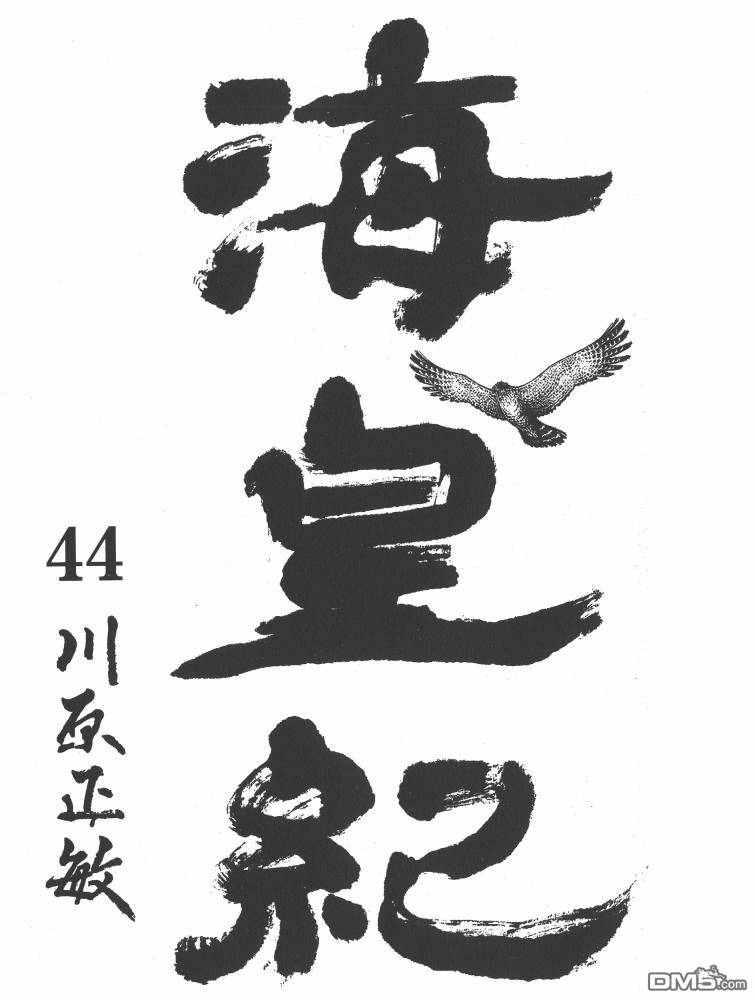 海皇紀
44
川原正敏
DM5.com